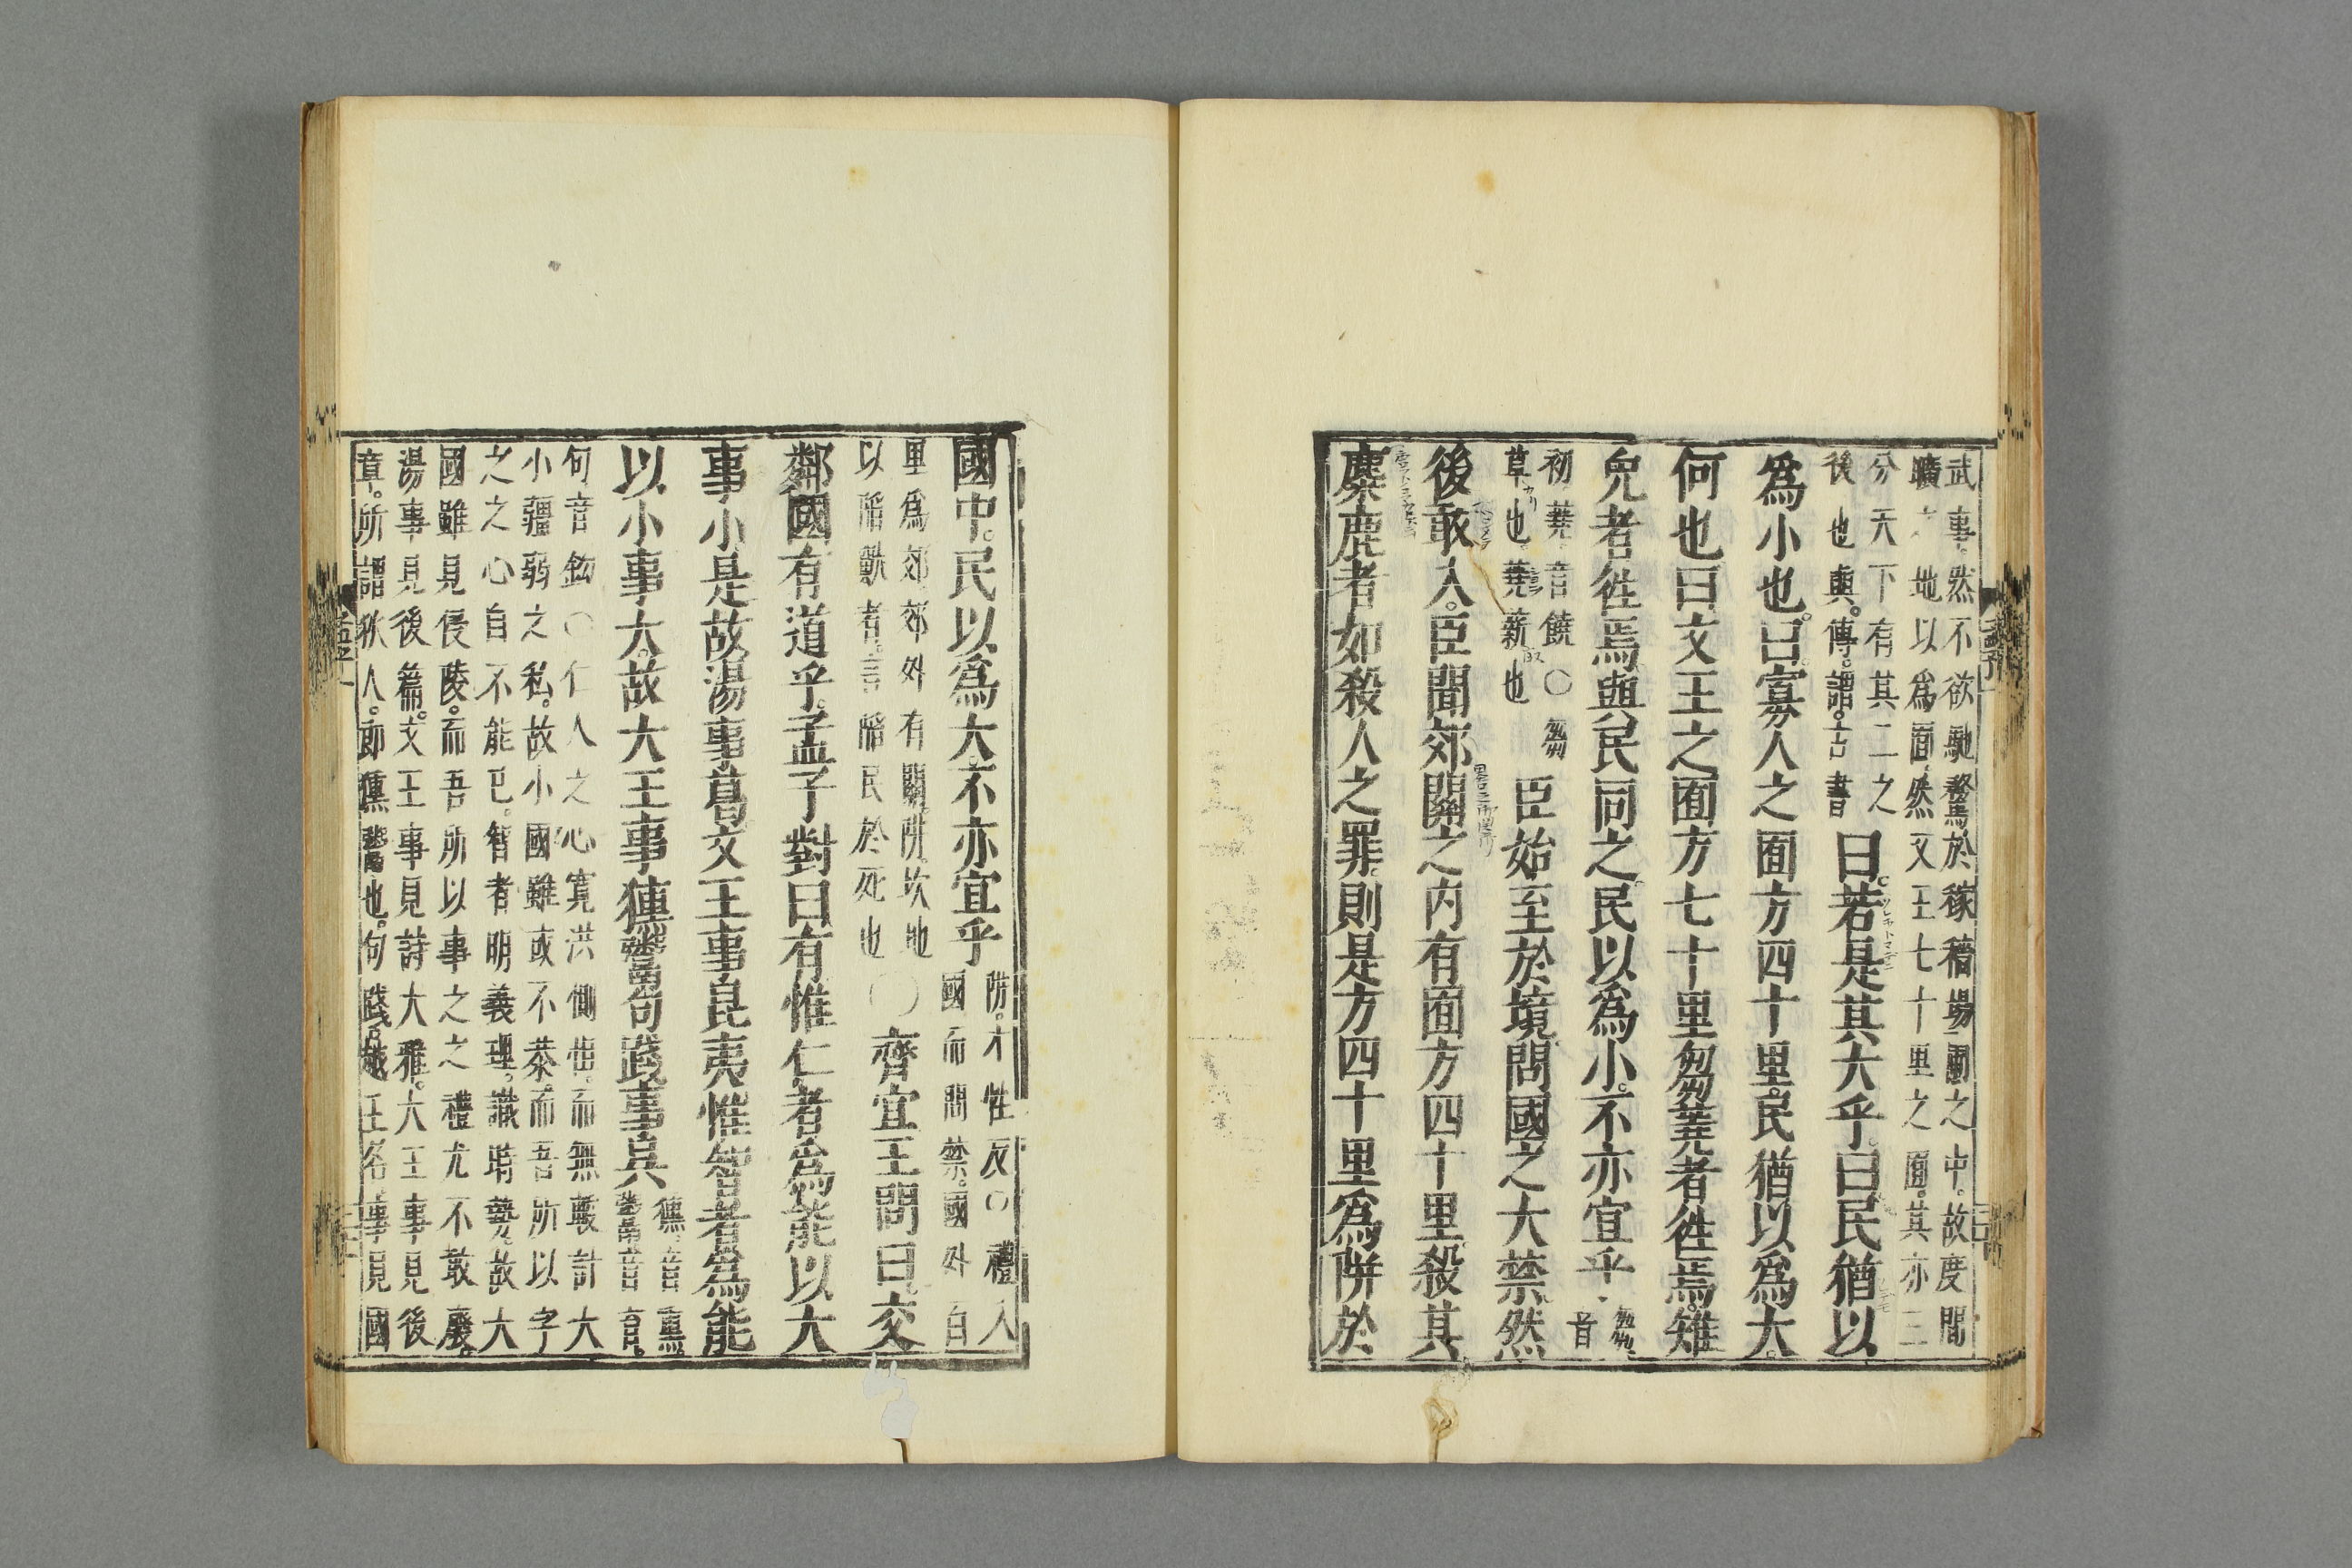 武事。然不欲馳騖於稼穡場圃之中。故度閒
曠之地以爲囿。然文王七十里之囿。其亦三
分天下有其二之
後也與。傳。謂。古書
曰。若是其大乎。曰民猶以
爲小也。曰。寡人之囿方四十里。民猶以爲大。
何也曰文王之囿方七十里芻蕘者徃焉。雉
兎者徃焉與民同之。民以爲小。不亦宜乎
芻。音
初。蕘。音饒〇芻
草也。蕘薪也
臣始至於境。問國之大禁。然
後敢入。臣聞郊關之内有囿方四十里。殺其
麋鹿者如殺人之罪。則是方四十里爲阱於
國中。民以爲大。不亦宜乎
阱。才性反〇禮入
國而問禁。國外百
里爲郊郊外有關。阱。坎地
以陷獸者。言陷民於死也
〇齊宣王問曰。交
鄰國有道乎。孟子對曰有惟仁者爲能以大
事小是故湯事葛文王事昆夷惟智者爲能
以小事大。故大王事獯鬻句踐事吳
獯。音熏。
鬻音育。
句音鉤〇仁人之心寬洪惻怛。而無較計大
小彊弱之私。故小國雖或不恭而吾所以字
之之心自不能已。智者明義理。識時勢。故大
國雖見侵陵。而吾所以事之之禮尤不敢廢。
湯事見後篇。文王事見詩大雅。大王事見後
章。所謂狄人。卽獯鬻也。句踐越王名。事見國